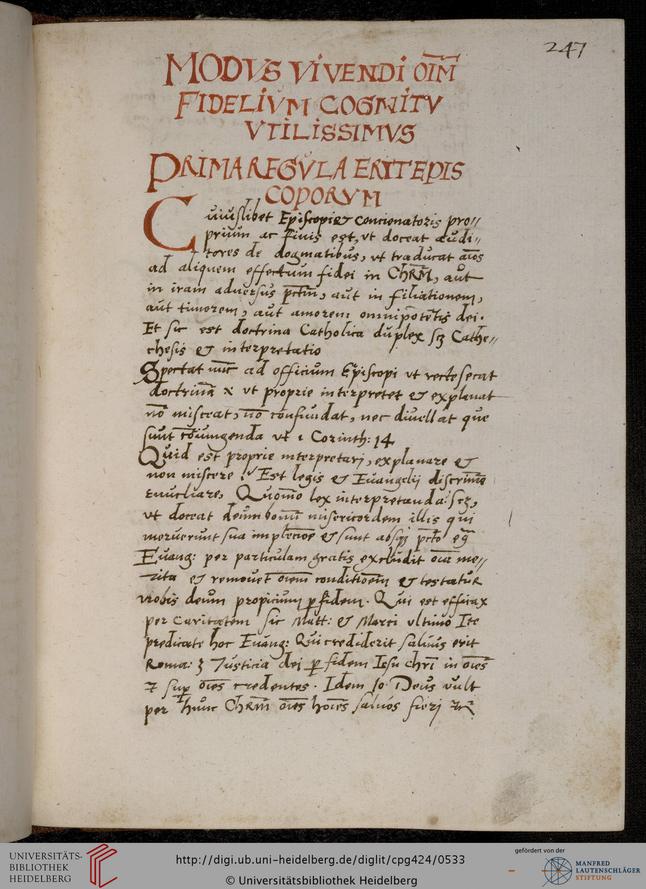 247
MODVS VIVENDI OIM̄
FIDELIVM COGNITV
VTILISSIMVS
PRIMA REGVLA ERIT EPIS
COPORVM
Cuiuslibet Episcopi & Concionatoris pro//
prium ac finis est, ut doceat audi//
tores de dogmatibus, ut traducat aīos
ad aliquem effectum fidei in ChRM̄, aut
in iram adversus pctm̄, aut in filiationem,
aut timorem, aut amorem omnipotētis dei.
Et sic est doctrina Catholica duplex scz Cathe//
chesis & interpretatio
Spectat nūc ad officium Episcopi ut recte secat
doctrinā ut proprie interpretet & explanat
nō misceat, nō confundat, nec divellat que
sunt cōiungenda ut 1 Corinth: 14
Quid est proprie interpretarj, explanare &
non miscere? Est legis & Euangelij discrimē
enucliare, Quomō lex interpretanda: scz,
ut doceat deum bonū misericordem illis qui
meruerunt sua & sunt absq; pctō
Euang: per particulam gratis excludit oīa me//
rita & removet oīem conditionem & testatur
vobis deum propicium p fidem. Qui est efficax
per Caritatem sic Matt: & Marci ultimō Ite
predicate hoc Euang: Qui crediderit salvus erit
Roma: 3 Iusticia dei p fidem Iesu chri in oīes
& sup oīes credentes. Idem Io. Deus vult
per hunc ChRM̄ oīes hoīes salvos fierj
UNIVERSITÄTS-
BIBLIOTHEK
HEIDELBERG
http://digi.ub.uni-heidelberg.de/diglit/cpg424/0533
© Universitätsbibliothek Heidelberg
gefördert von der
MANFRED
LAUTENSCHLÄGER
STIFTUNG